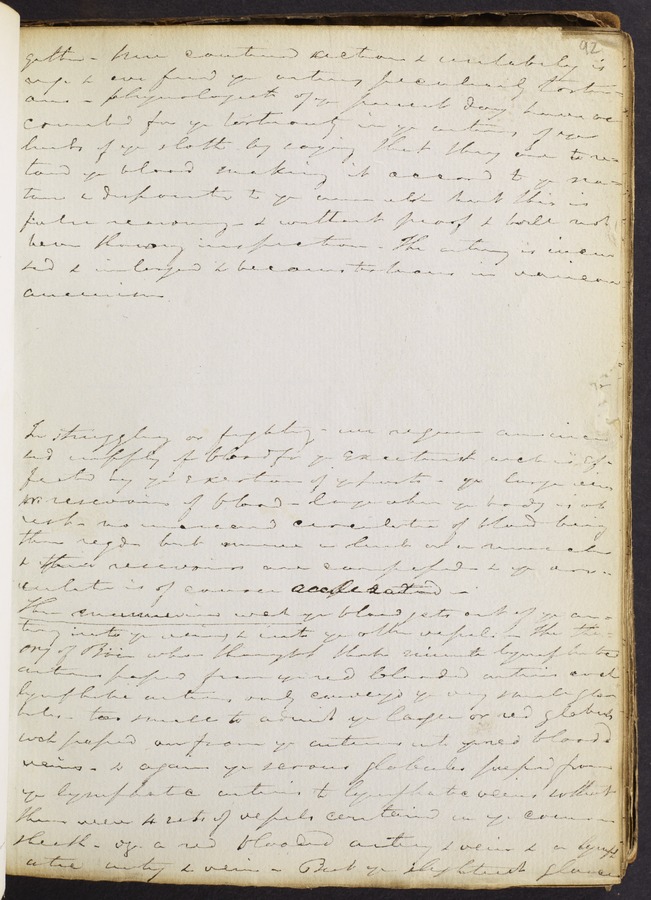 92
gether - here continued action & irritability is
urge & we find ye arteries peculiarly tortu=
ous - physiologists of ye present day have ac
counted for ye tortuosity in ye arteries of ye
limbs of ye sloth by saying that they are to re=
tard ye blood making it accord to ye na=
ture & disposition to ye animal but this is
futile reasoning & without proof & will not
bear thorough inspection - The artery is increa
sed & enlarged & becomes tortuous in varicose
aneurism
In struggling or fighting - we require an increa
sed supply of blood for ye exertion which is ef=
fected by ye exertion of ye parts - ye large veins
or reservoirs of blood - large when ye body is at
rest - no increased circulation of blood being
then reqd but
& these reservoirs are compressed & ye circ=
culation is of course accelerated -
The wch ye blood gets out of ye ar=
tery into ye veins & into ye other vessels - The the=
ory of Boer who thought that minute lymphatic
arteries passed from ye red blooded arteries and
lymphatic arteries only conveyed ye very small glo
bules - too small to admit ye larger or red globules
wch passed on from ye arteries into ye red blooded
veins - & again ye serous globules passed from
ye lymphatic arteries to lymphatic veins so that
there were 4 sets of vessels contained in ye common
sheath - vz a red blooded artery & vein & a lymph
atic artery & vein - But ye slightest glance